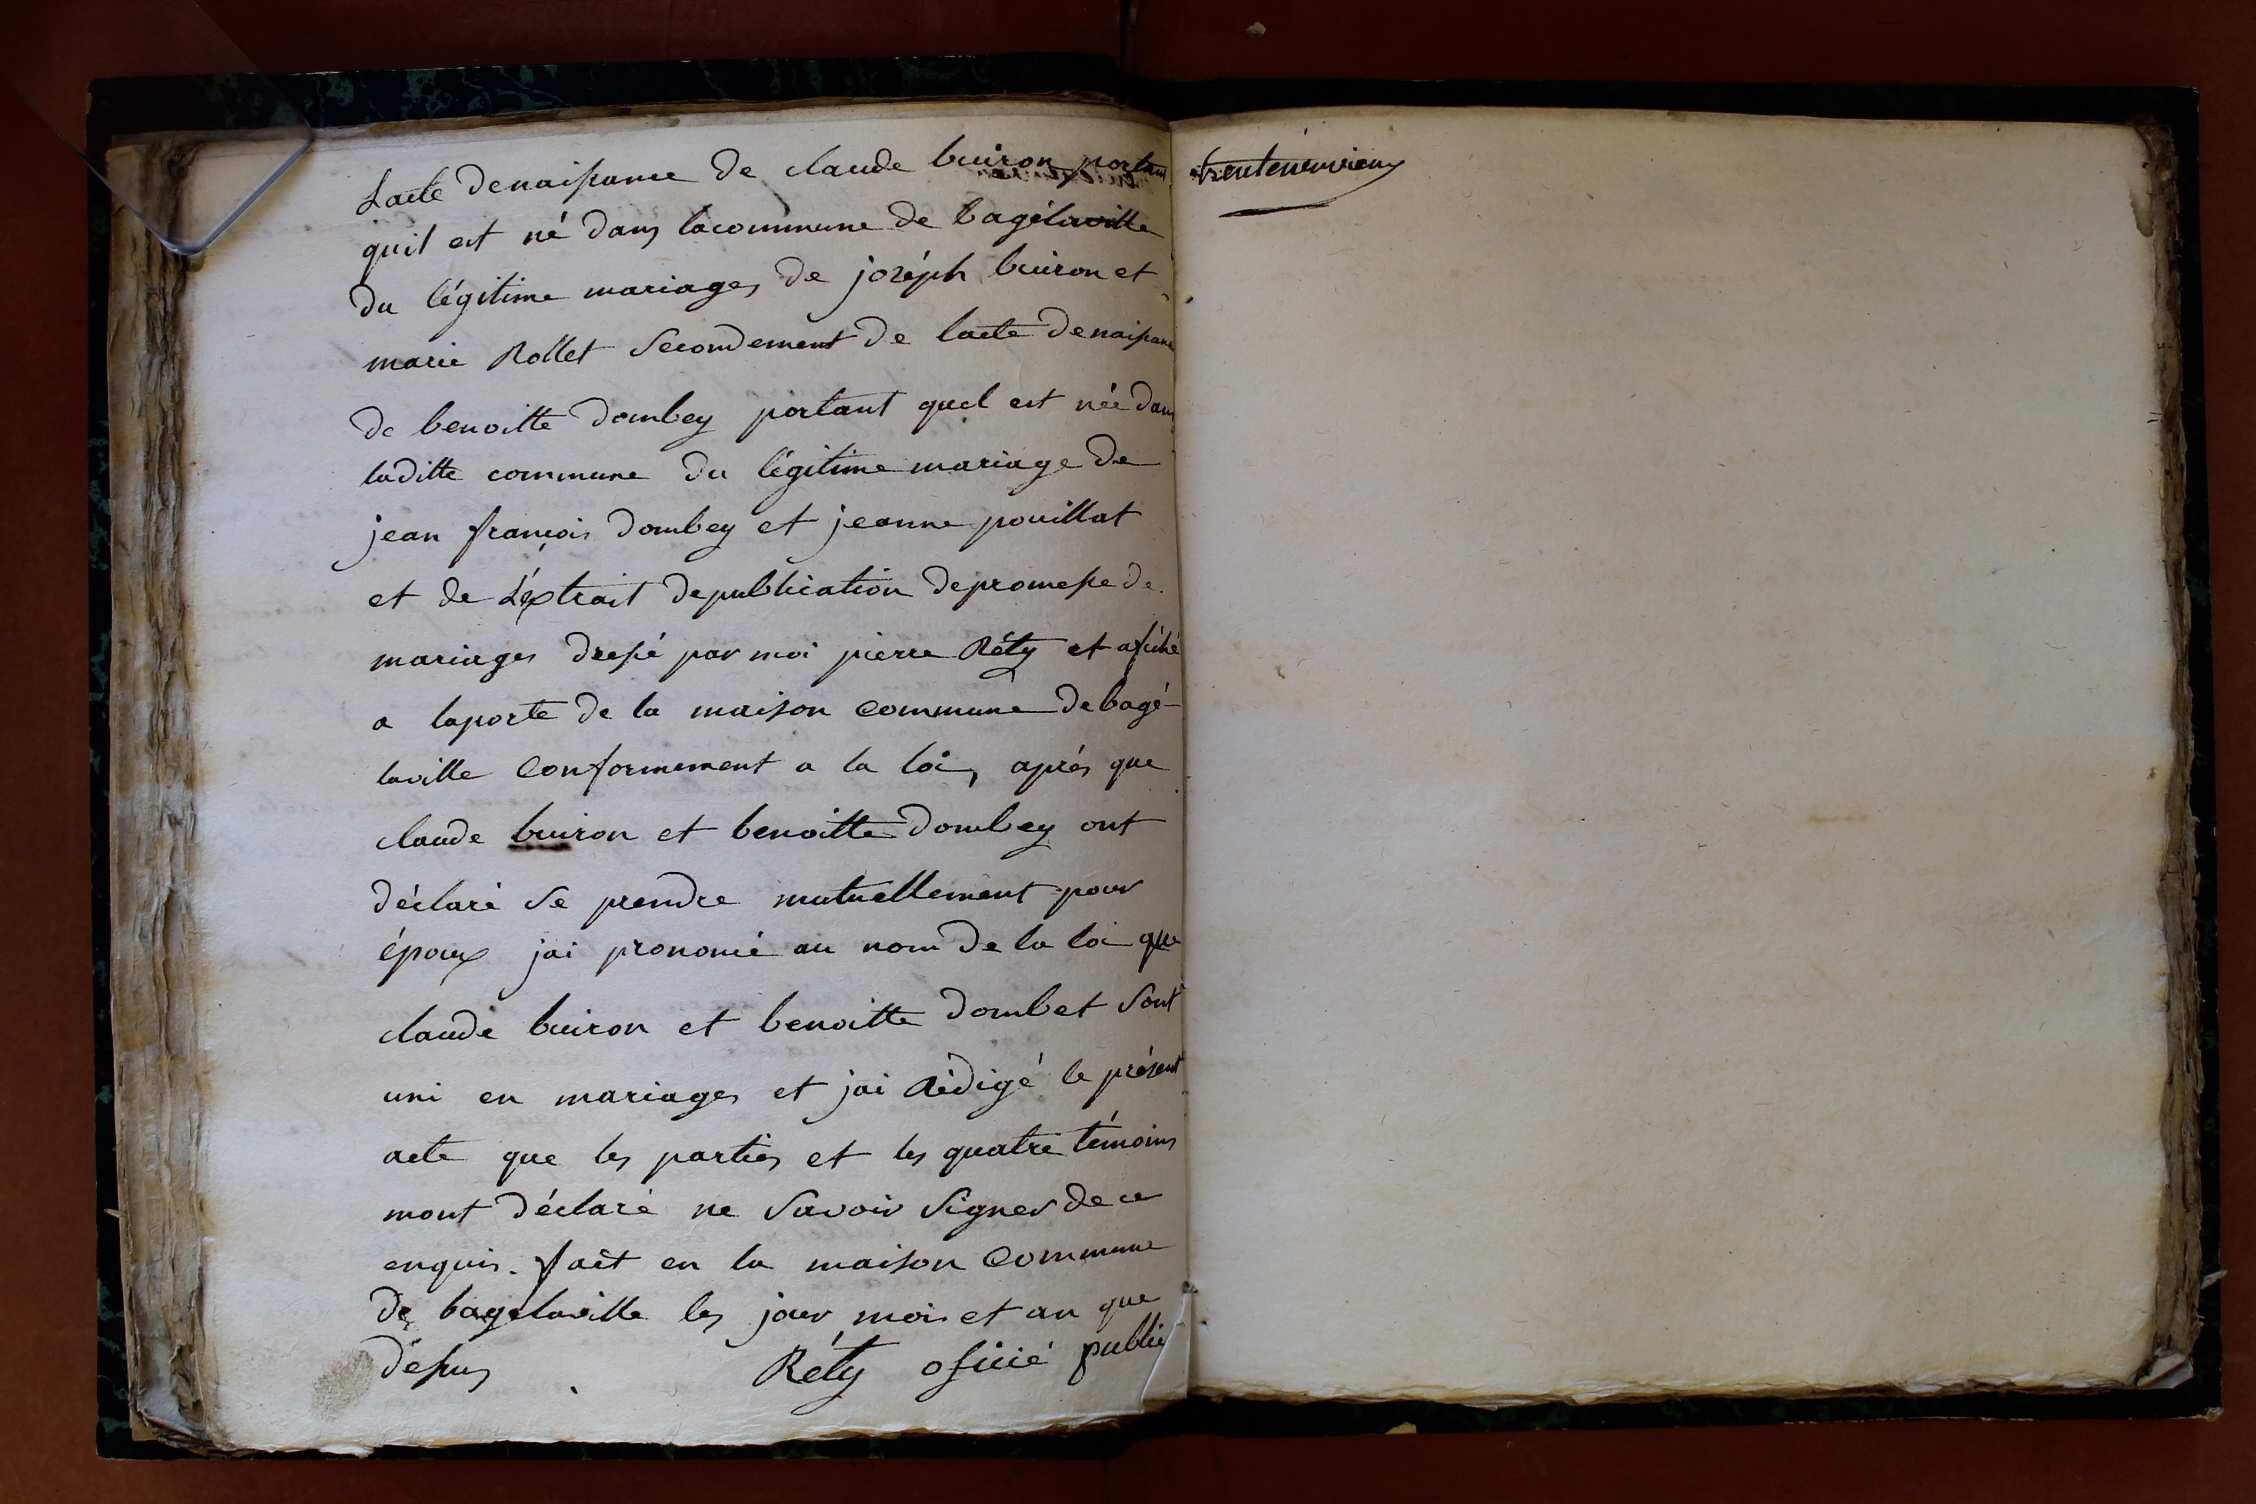 Lacte denaissance de claude buiron portant
quil est né dans lacommune de bagélaville
du légitime mariages de joséph buiron et
marie Rollet Secondement de lacte denaissance
de benoitte dombey portant quel est née dans
laditte commune du légitime mariage de
jean françois dombey et jeanne pouillat
et de L'éxtrait depublication depromesse de
mariages dressé par moi pierre Réty et afiché
a laporte de la maison commune de bagé-
laville conformement a la loi, aprés que
claude buiron et benoitte dombey ont
déclaré se prendre mutuellement pour
époux jai prononcé au nom de la loi que
claude buiron et benoitte dombet sont
uni en mariages et jai Rédigé le présent
acte que les parties et les quatre témoins
mont déclaré ne Savoir Signer de ce
enquis. fait en la maison commune
de bagelaville les jour mois et an que
dessus Réty oficié public
trenteneuvieme